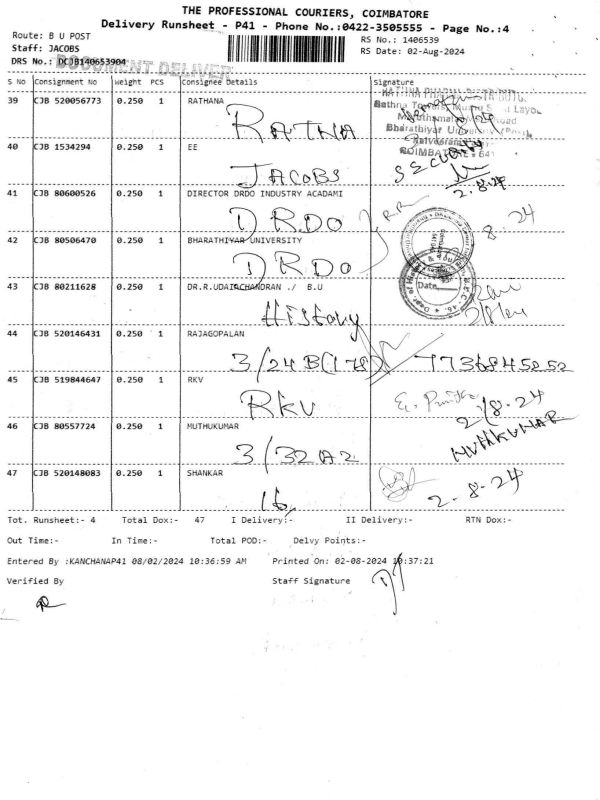 THE PROFESSIONAL COURIERS, COIMBATORE
Delivery Runsheet - P41 - Phone No.:0422-3505555 - Page No.:4
Route: B U POST
RS No.: 1406539
Staff: JACOBS
RS Date: 02-Aug-2024
DRS No.: DCJB140653904
DOCUMENT DELIVER
S No Consignment No Weight PCS Consignee Details Signature
39 CJB 520056773 0.250 1 RATHANA
RATNA
40 CJB 1534294 0.250 1 EE
JACOBS
SECURITY
2.8.24
41 CJB 80600526 0.250 1 DIRECTOR DRDO INDUSTRY ACADAMI
DRDO
8.24
42 CJB 80506470 0.250 1 BHARATHIYAR UNIVERSITY
DRDO
Date
43 CJB 80211628 0.250 1 DR.R.UDAIACHANDRAN ./ B.U
History
44 CJB 520146431 0.250 1 RAJAGOPALAN
3/24B(178) 7736845252
45 CJB 519844647 0.250 1 RKV
RKV
2/8.24
46 CJB 80557724 0.250 1 MUTHUKUMAR
3/32A2
MUTHKUMAR
47 CJB 520148083 0.250 1 SHANKAR
16
2.8.24
Tot. Runsheet:- 4 Total Dox:- 47 I Delivery:- II Delivery:- RTN Dox:-
Out Time:- In Time:- Total POD:- Delvy Points:-
Entered By :KANCHANAP41 08/02/2024 10:36:59 AM Printed On: 02-08-2024 10:37:21
Verified By Staff Signature